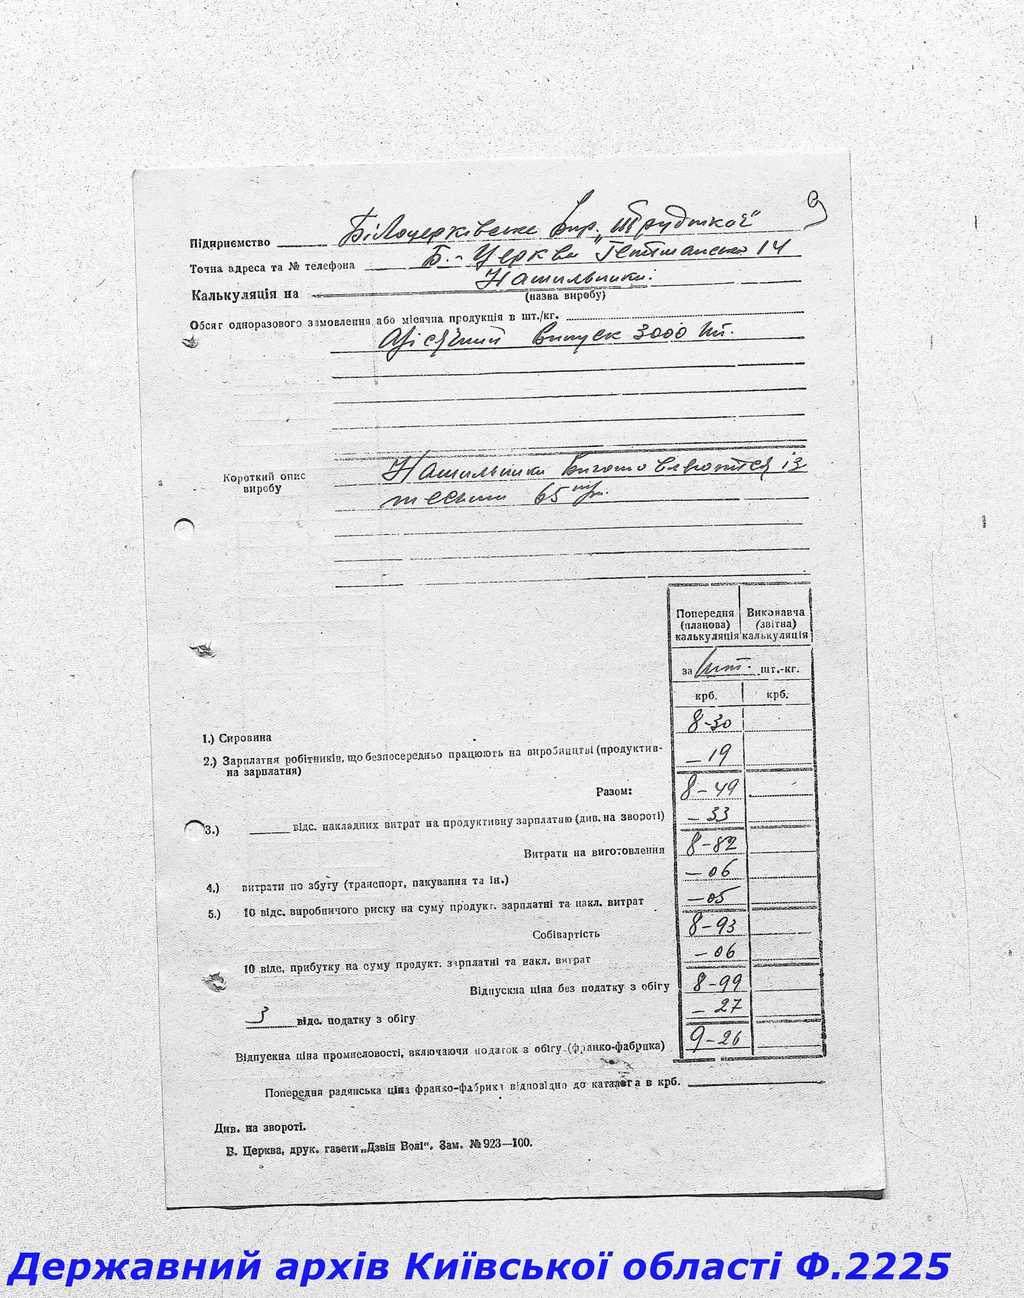 9
Підприємство Білоцерківське Вир. „Трудшкол"
Точна адреса та № телефона Б.-Церква Гетманська 14
Калькуляція на Нашильники.
(назва виробу)
Обсяг одноразового замовлення або місячна продукція в шт./кг.
Місячний випуск 3000 шт.
Короткий опис
виробу
Нашильники виготовляются із
тесьми 65 м/м.
Попередня (планова) калькуляція
Виконавча (звітна) калькуляція
за шт. шт.-кг.
крб. крб.
1.) Сировина 8-30
2.) Зарплатня робітників, що безпосередньо працюють на виробництві (продуктив-
на зарплатня) —19
Разом: 8-49
3.) відс. накладних витрат на продуктивну зарплатню (див. на звороті) —33
Витрати на виготовлення 8-82
4.) витрати по збуту (транспорт, пакування та ін.) —06
5.) 10 відс. виробничого риску на суму продукт. зарплатні та накл. витрат —05
Собівартість 8-93
10 відс. прибутку на суму продукт. зарплатні та накл. витрат —06
Відпускна ціна без податку з обігу 8-99
3 відс. податку з обігу —27
Відпускна ціна промисловості, включаючи податок з обігу (франко-фабрика) 9-26
Попередня радянська ціна франко-фабрика відповідно до каталога в крб.
Див. на звороті.
Б. Церква, друк. газети „Дзвін Волі". Зам. № 923—100.
Державний архів Київської області Ф.2225